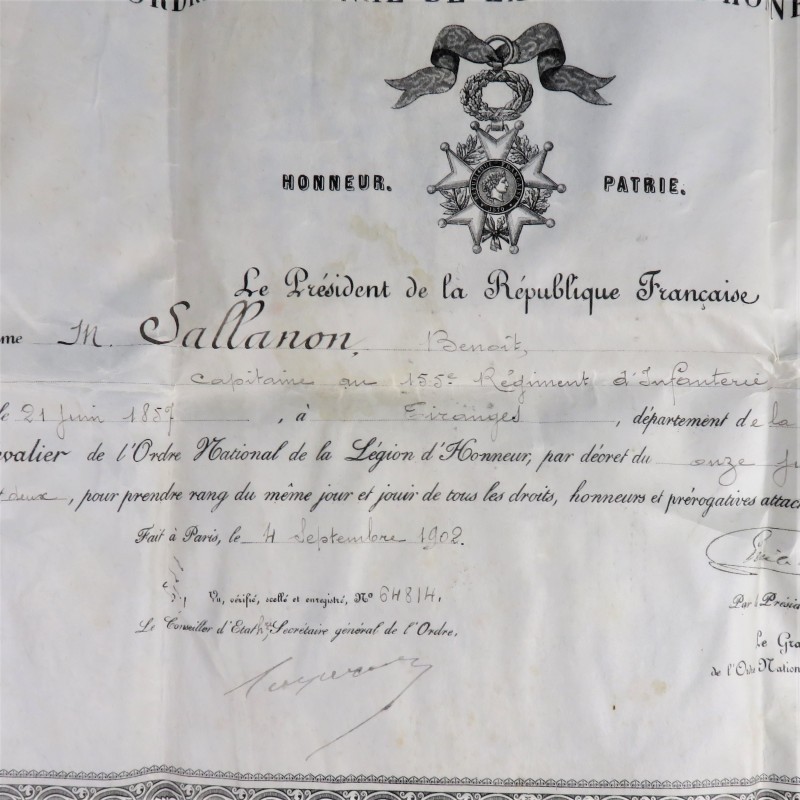 HONNEUR. PATRIE.
RÉPUBLIQUE FRANÇAISE
1870
Le Président de la République Française
M. Sallanon, Benoît,
Capitaine au 155e Régiment d'Infanterie,
le 21 Juin 1857, à Tiranges, département de la
de l'Ordre National de la Légion d'Honneur, par décret du onze
deux, pour prendre rang du même jour et jouir de tous les droits, honneurs et prérogatives
Fait à Paris, le 4 Septembre 1902.
Vu, vérifié, scellé et enregistré, No 64814.
Par
Le Conseiller d'Etat Secrétaire général de l'Ordre.
Le
de l'Ordre